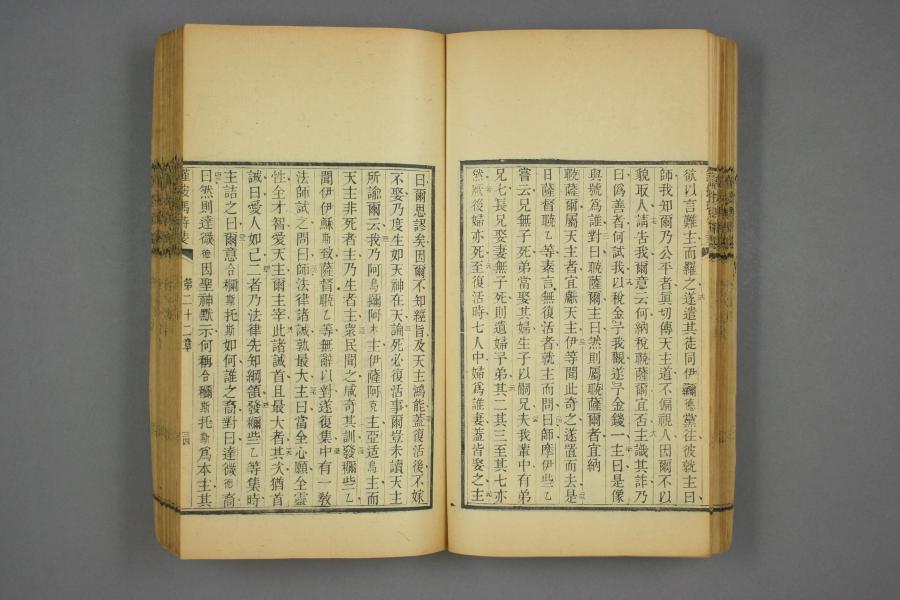 欲以言難主而羅之遂遣其徒同伊羅德黨往彼就主曰
師我知爾乃公平者眞切傳天主道不偏視人因爾不以
貌取人請告我爾意云何納稅聴薩爾宜否主識其詐乃
曰僞善者何試我以稅金予我觀遂予金錢一主曰是像
與號爲誰對曰聴薩爾主曰然則屬聴薩爾者宜納
聴薩爾屬天主者宜獻天主伊等聞此奇之遂置而去是
日薩督聴乙等素言無復活者就主而問曰師摩伊些乙
嘗云兄無子死弟當娶其婦生子以嗣兄夫我輩中有弟
兄七長兄娶妻無子死則遺婦予弟其二其三至其七亦
然厥後婦亦死至復活時七人中婦爲誰妻蓋皆娶之主
曰爾思謬矣因爾不知經旨及天主鴻能蓋復活後不嫁
不娶乃度生如天神在天論死必復活事爾豈未讀天主
所諭爾云我乃阿烏拉阿木主伊薩阿克主亞适烏主而
天主非死者主乃生者主衆民聞之咸奇其訓發㰚些乙
聞伊伊穌斯致薩督聴乙等無辭以對遂復集中有一敎
法師試之問曰師法律諸誡孰最大主曰當全心願全靈
性全才智愛天主爾主宰此諸誡首且最大者其次猶首
誡曰愛人如己二者乃法律先知綱領發㰚些乙等集時
主詰之曰爾意合㰚斯托斯如何誰之裔對曰達微德裔
曰然則達微德因聖神默示何稱合㰚斯托斯爲本主其
第二十二章
三四